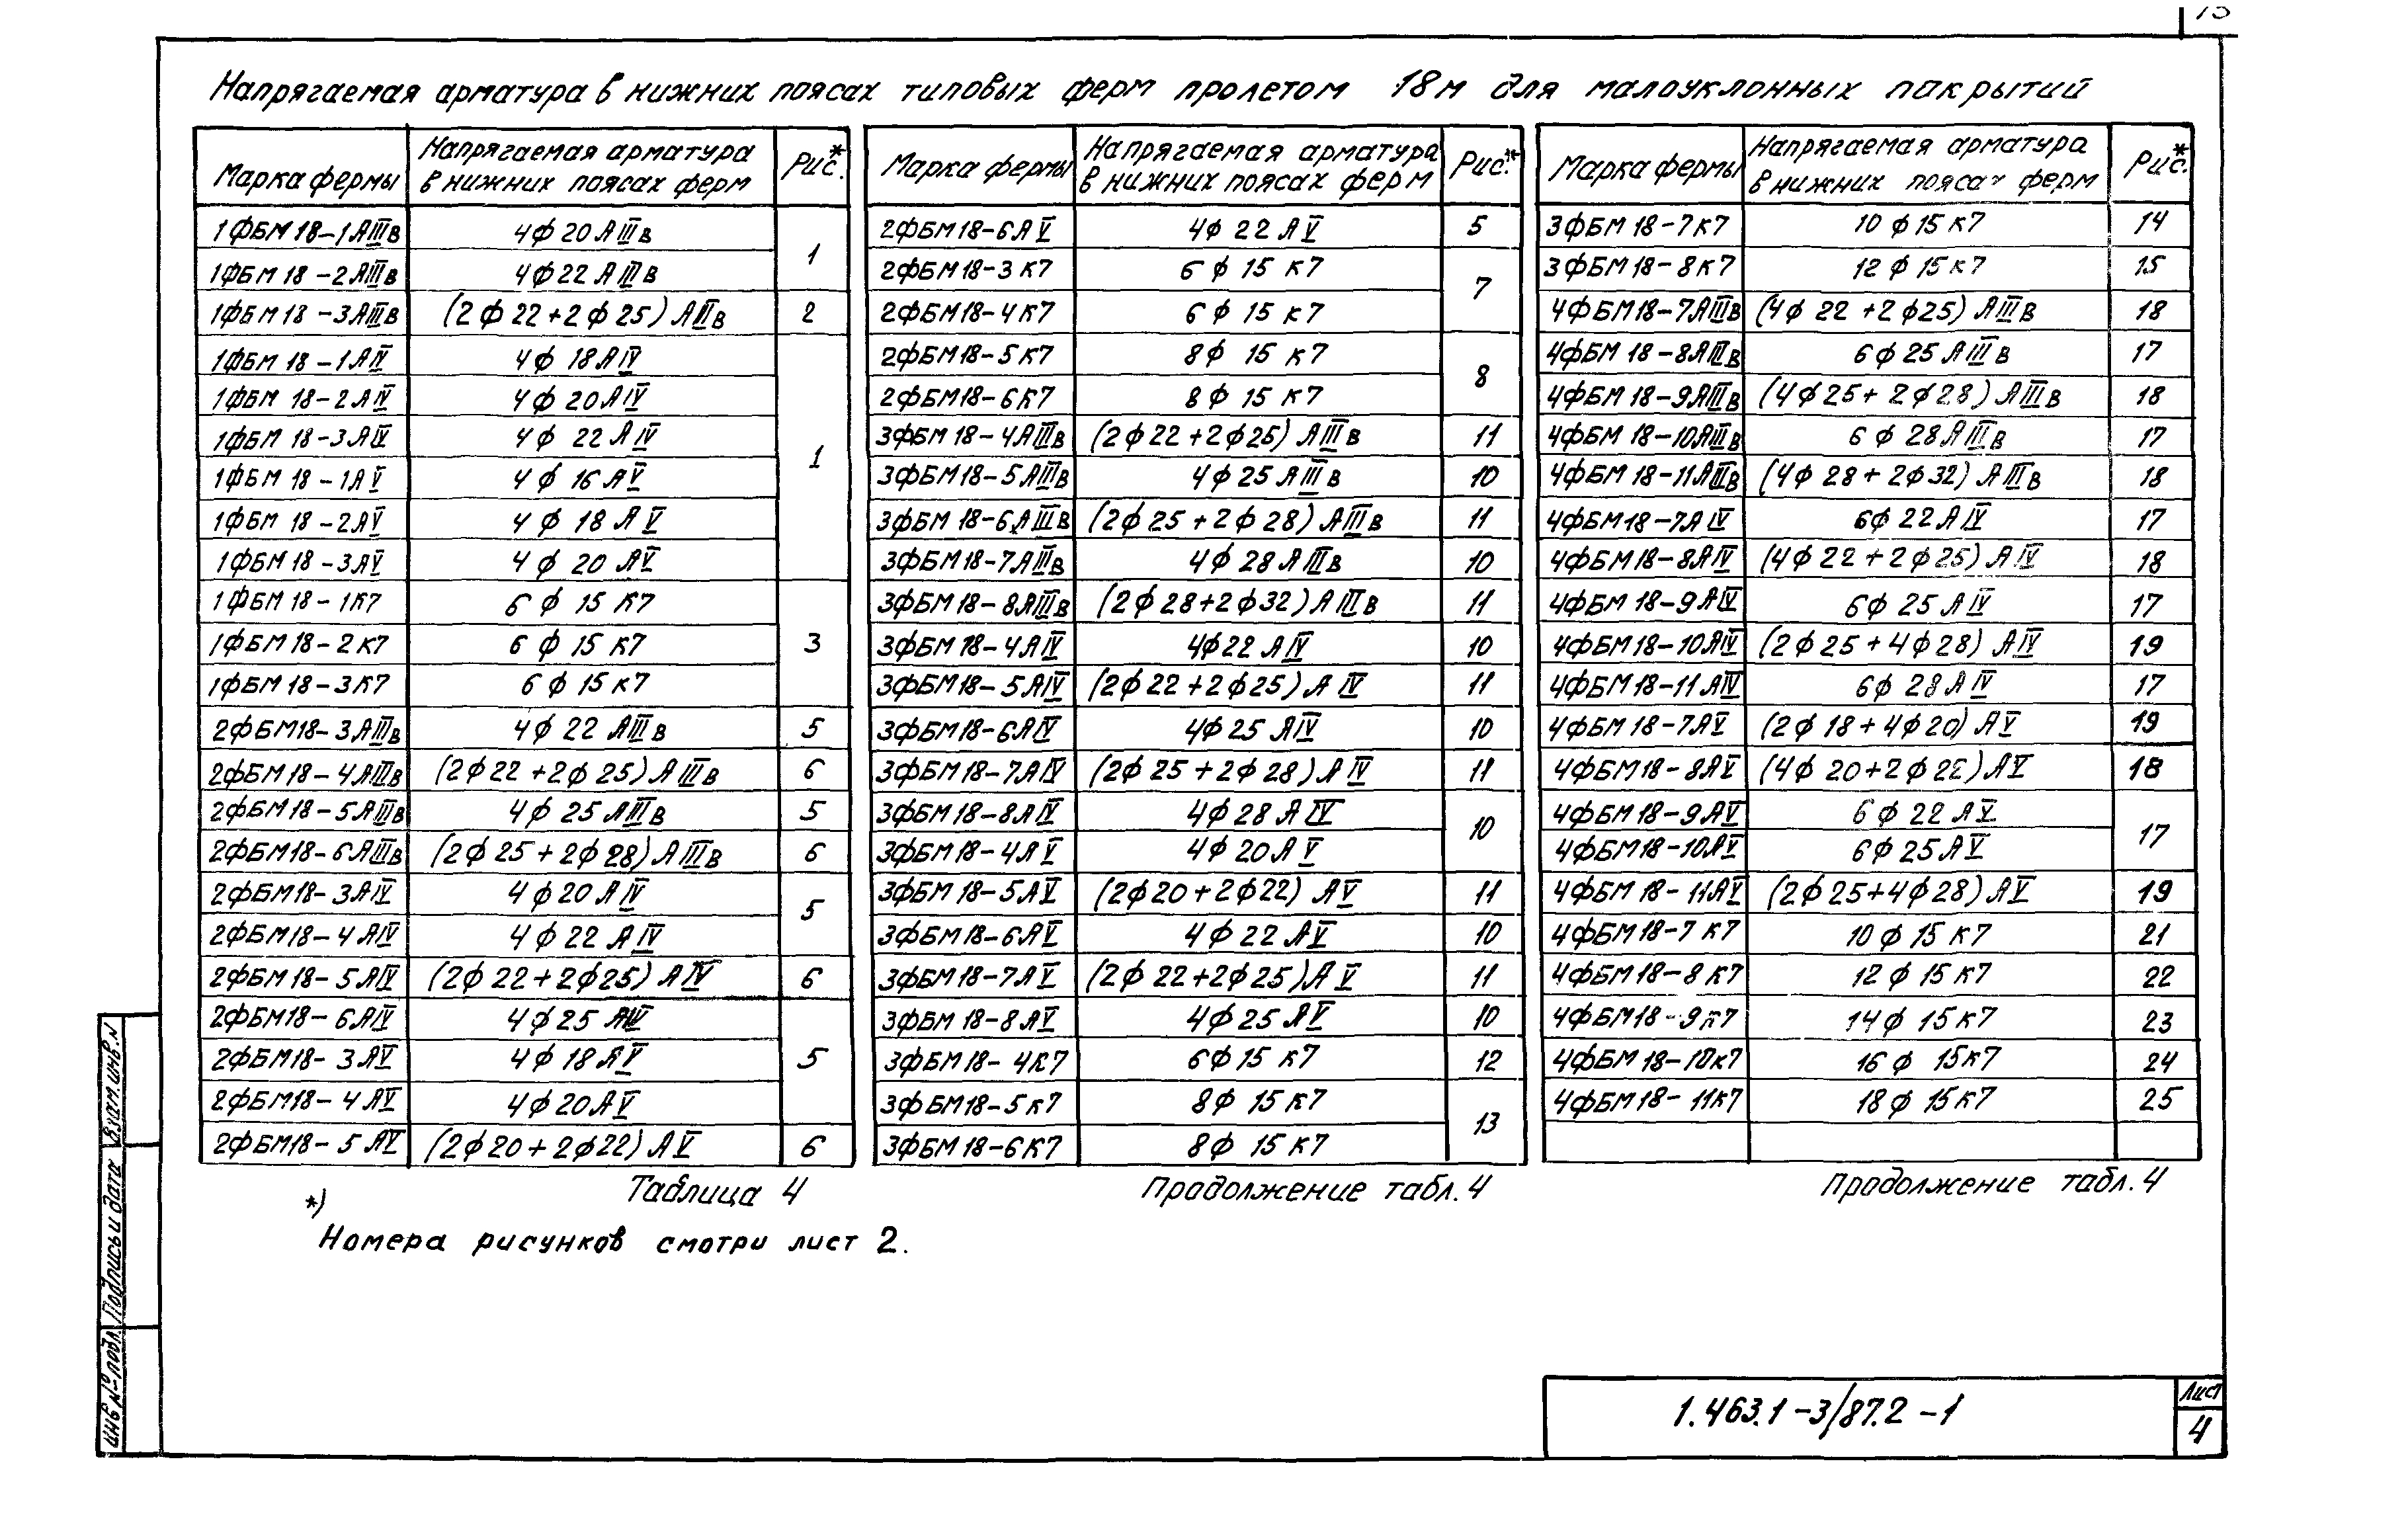 Напрягаемая арматура в нижних поясах типовых ферм пролетом 18м для малоуклонных покрытий
Марка фермы | Напрягаемая арматура в нижних поясах ферм | Рис.*
1ФБМ18-1АIIIв | 4ф20АIIIв | 1
1ФБМ18-2АIIIв | 4ф22АIIIв
1ФБМ18-3АIIIв | (2ф22+2ф25)АIIIв | 2
1ФБМ18-1АIV | 4ф18АIV | 1
1ФБМ18-2АIV | 4ф20АIV
1ФБМ18-3АIV | 4ф22АIV
1ФБМ18-1АV | 4ф16АV
1ФБМ18-2АV | 4ф18АV
1ФБМ18-3АV | 4ф20АV
1ФБМ18-1К7 | 6ф15К7 | 3
1ФБМ18-2К7 | 6ф15К7
1ФБМ18-3К7 | 6ф15К7
2ФБМ18-3АIIIв | 4ф22АIIIв | 5
2ФБМ18-4АIIIв | (2ф22+2ф25)АIIIв | 6
2ФБМ18-5АIIIв | 4ф25АIIIв | 5
2ФБМ18-6АIIIв | (2ф25+2ф28)АIIIв | 6
2ФБМ18-3АIV | 4ф20АIV | 5
2ФБМ18-4АIV | 4ф22АIV
2ФБМ18-5АIV | (2ф22+2ф25)АIV | 6
2ФБМ18-6АIV | 4ф25АIV | 5
2ФБМ18-3АV | 4ф18АV
2ФБМ18-4АV | 4ф20АV
2ФБМ18-5АV | (2ф20+2ф22)АV | 6
Таблица 4
Марка фермы | Напрягаемая арматура в нижних поясах ферм | Рис.*
2ФБМ18-6АV | 4ф22АV | 5
2ФБМ18-3К7 | 6ф15К7 | 7
2ФБМ18-4К7 | 6ф15К7
2ФБМ18-5К7 | 8ф15К7 | 8
2ФБМ18-6К7 | 8ф15К7
3ФБМ18-4АIIIв | (2ф22+2ф25)АIIIв | 11
3ФБМ18-5АIIIв | 4ф25АIIIв | 10
3ФБМ18-6АIIIв | (2ф25+2ф28)АIIIв | 11
3ФБМ18-7АIIIв | 4ф28АIIIв | 10
3ФБМ18-8АIIIв | (2ф28+2ф32)АIIIв | 11
3ФБМ18-4АIV | 4ф22АIV | 10
3ФБМ18-5АIV | (2ф22+2ф25)АIV | 11
3ФБМ18-6АIV | 4ф25АIV | 10
3ФБМ18-7АIV | (2ф25+2ф28)АIV | 11
3ФБМ18-8АIV | 4ф28АIV | 10
3ФБМ18-4АV | 4ф20АV
3ФБМ18-5АV | (2ф20+2ф22)АV | 11
3ФБМ18-6АV | 4ф22АV | 10
3ФБМ18-7АV | (2ф22+2ф25)АV | 11
3ФБМ18-8АV | 4ф25АV | 10
3ФБМ18-4К7 | 6ф15К7 | 12
3ФБМ18-5К7 | 8ф15К7 | 13
3ФБМ18-6К7 | 8ф15К7
Продолжение табл.4
Марка фермы | Напрягаемая арматура в нижних поясах ферм | Рис.*
3ФБМ18-7К7 | 10ф15К7 | 14
3ФБМ18-8К7 | 12ф15К7 | 15
4ФБМ18-7АIIIв | (4ф22+2ф25)АIIIв | 18
4ФБМ18-8АIIIв | 6ф25АIIIв | 17
4ФБМ18-9АIIIв | (4ф25+2ф28)АIIIв | 18
4ФБМ18-10АIIIв | 6ф28АIIIв | 17
4ФБМ18-11АIIIв | (4ф28+2ф32)АIIIв | 18
4ФБМ18-7АIV | 6ф22АIV | 17
4ФБМ18-8АIV | (4ф22+2ф25)АIV | 18
4ФБМ18-9АIV | 6ф25АIV | 17
4ФБМ18-10АIV | (2ф25+4ф28)АIV | 19
4ФБМ18-11АIV | 6ф28АIV | 17
4ФБМ18-7АV | (2ф18+4ф20)АV | 19
4ФБМ18-8АV | (4ф20+2ф22)АV | 18
4ФБМ18-9АV | 6ф22АV | 17
4ФБМ18-10АV | 6ф25АV
4ФБМ18-11АV | (2ф25+4ф28)АV | 19
4ФБМ18-7К7 | 10ф15К7 | 21
4ФБМ18-8К7 | 12ф15К7 | 22
4ФБМ18-9К7 | 14ф15К7 | 23
4ФБМ18-10К7 | 16ф15К7 | 24
4ФБМ18-11К7 | 18ф15К7 | 25
Продолжение табл.4
*) Номера рисунков смотри лист 2.
Инв.№ подл. | Подпись и дата | Взам.инв.N
1.463.1-3/87.2-1
Лист
4